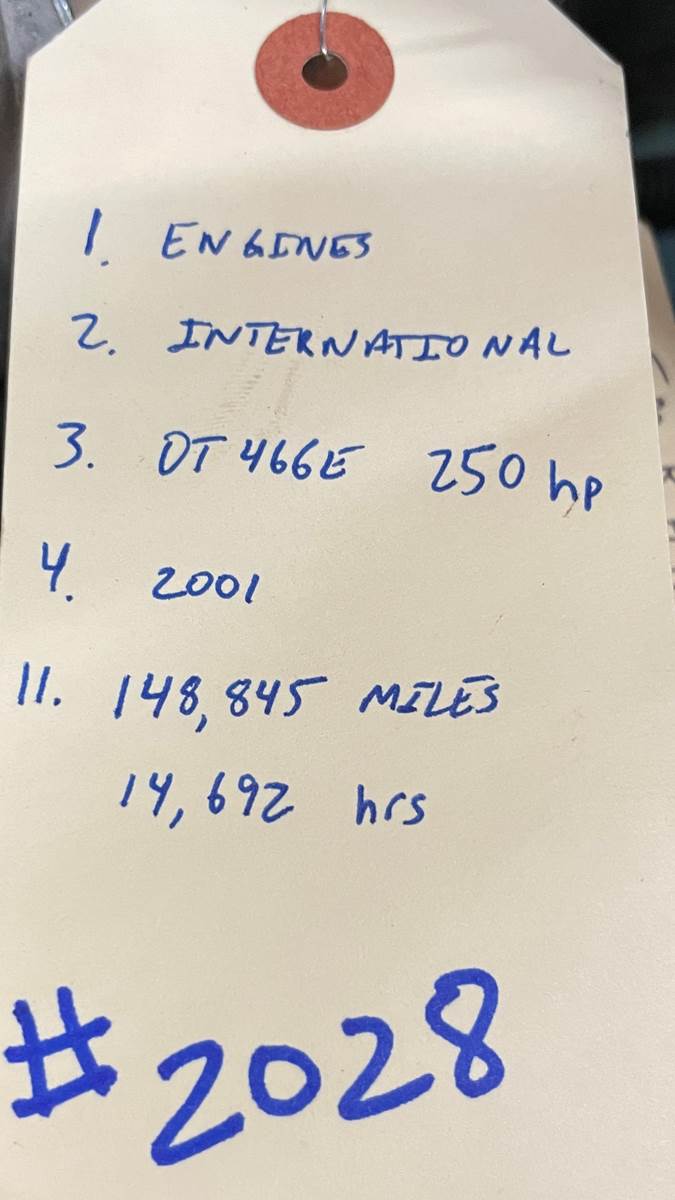 1. ENGINES
2. INTERNATIONAL
3. DT 466E 250 hp
4. 2001
11. 148,845 MILES
14,692 hrs
#2028